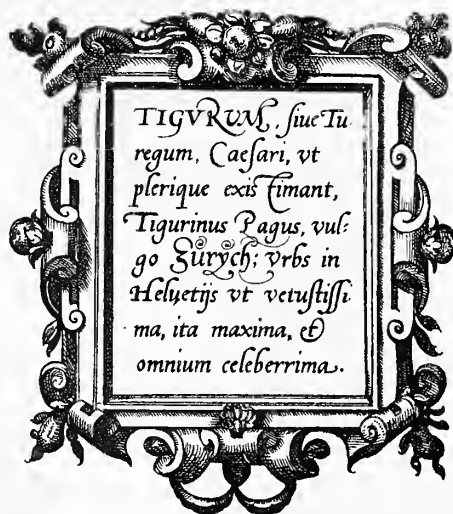 TIGVRVM, siue Tu
regum, Caesari, vt
plerique existimant,
Tigurinus Pagus, vul:
go Zürych; vrbs in
Heluetijs vt vetustissi
ma, ita maxima, &
omnium celeberrima.